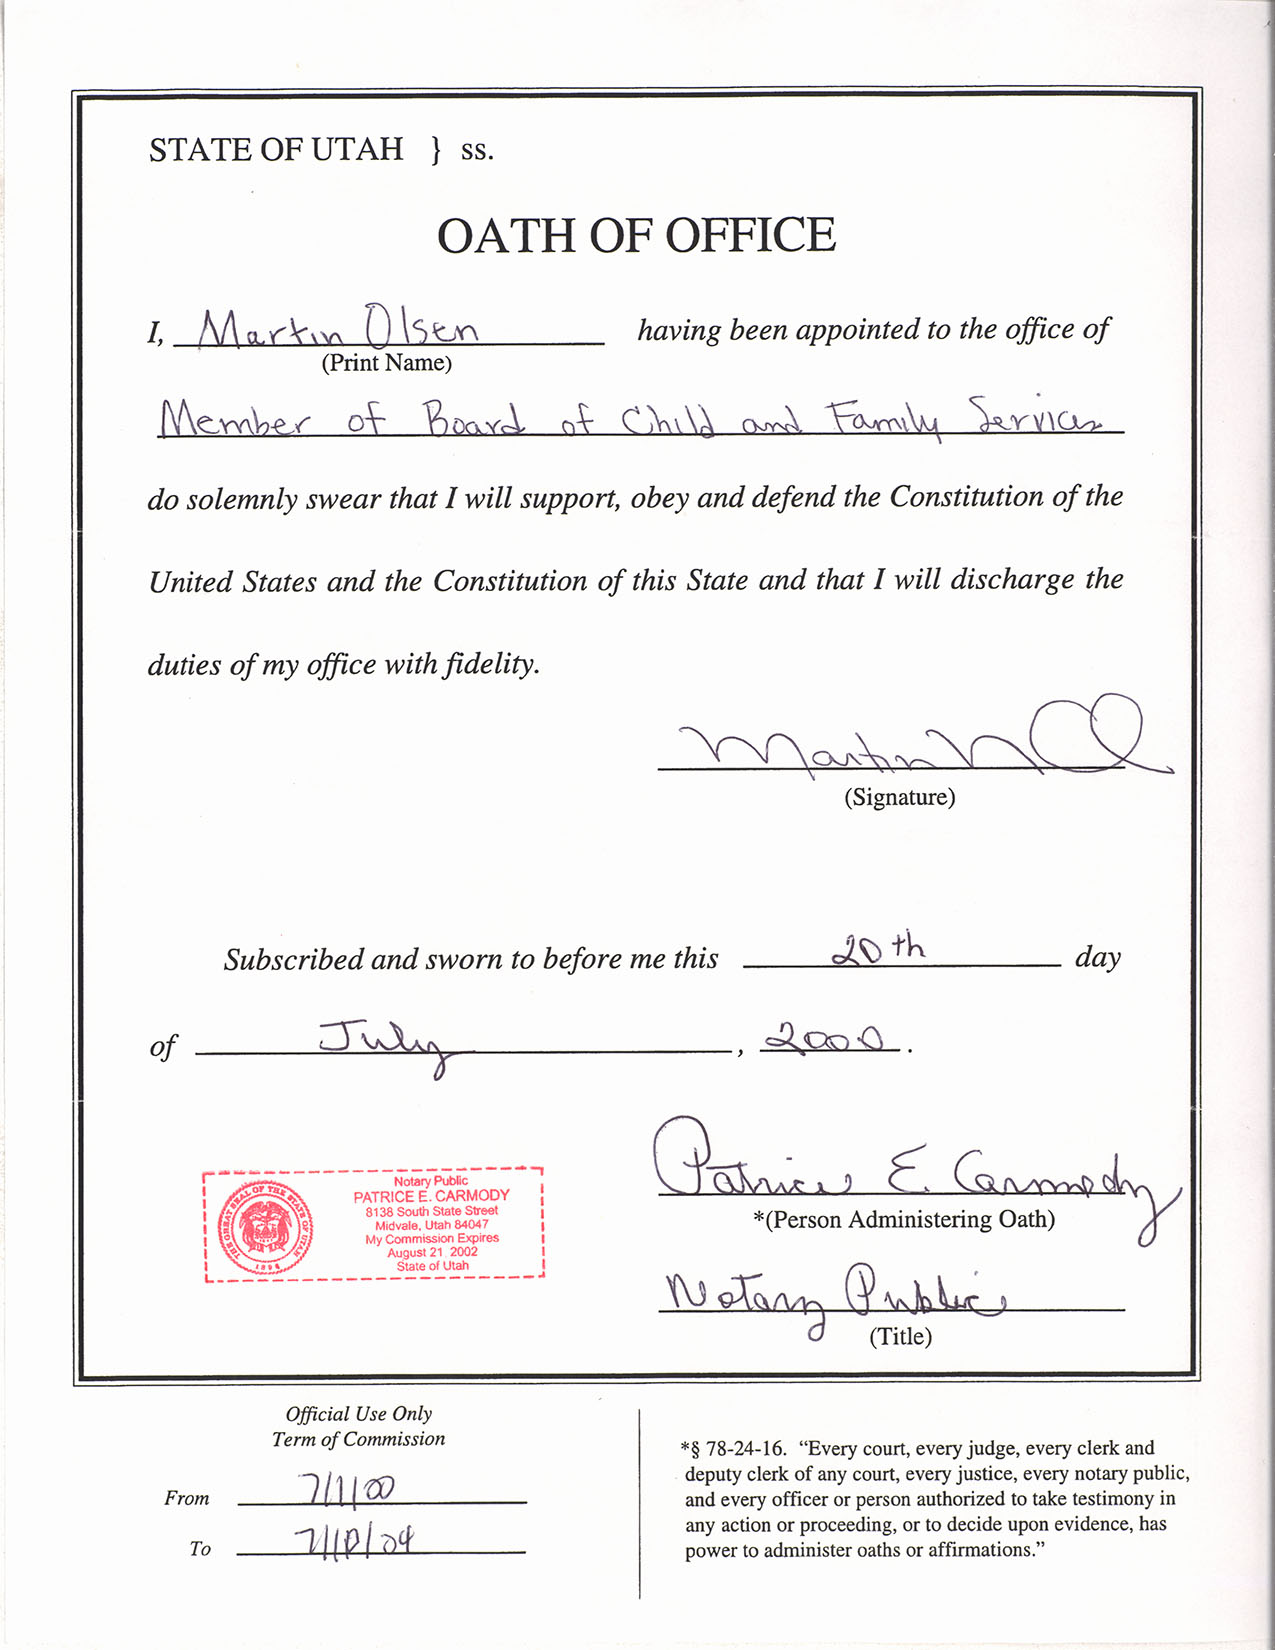 STATE OF UTAH } ss.
OATH OF OFFICE
I, Martin Olsen having been appointed to the office of
(Print Name)
Member of Board of Child and Family Services
do solemnly swear that I will support, obey and defend the Constitution of the
United States and the Constitution of this State and that I will discharge the
duties of my office with fidelity.
Martin
(Signature)
Subscribed and sworn to before me this 20th day
of July, 2000.
Patrice E. Carmody
*(Person Administering Oath)
Notary Public
(Title)
THE GREAT SEAL OF THE STATE OF UTAH
1896
Notary Public
PATRICE E. CARMODY
8138 South State Street
Midvale, Utah 84047
My Commission Expires
August 21, 2002
State of Utah
Official Use Only
Term of Commission
From 7/1/00
To
*§ 78-24-16. “Every court, every judge, every clerk and
deputy clerk of any court, every justice, every notary public,
and every officer or person authorized to take testimony in
any action or proceeding, or to decide upon evidence, has
power to administer oaths or affirmations.”